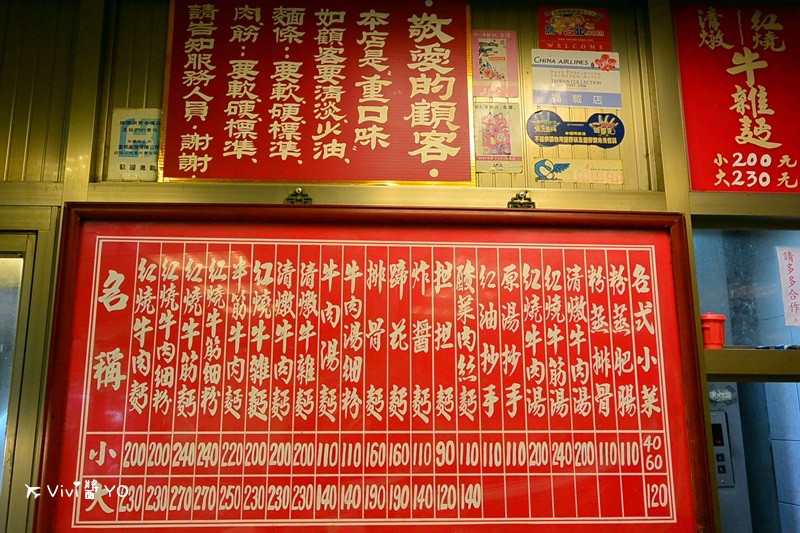 敬愛的顧客.
本店是"重口味"
如顧客要清淡少油、
麵條:要軟硬標準、
肉筋:要軟硬標準、
請告知服務人員.謝謝
WELCOME
CHINA AIRLINES
TAIWAN COLLECTION
特載店
紅燒
清燉
牛雜麵
小200元
大230元
請多多合作
名稱
紅燒牛肉麵
紅燒牛肉細粉
紅燒牛筋麵
紅燒牛筋細粉
半筋牛肉麵
紅燒牛雜麵
清燉牛肉麵
清燉牛雜麵
牛肉湯麵
牛肉湯細粉
排骨麵
蹄花麵
炸醬麵
担担麵
酸菜肉丝麵
紅油抄手
原湯抄手
紅燒牛肉湯
紅燒牛筋湯
清燉牛肉湯
粉蒸排骨
粉蒸肥腸
各式小菜
小 200 200 240 240 220 200 200 200 110 110 160 160 110 90 110 110 110 200 240 200 110 110 40 60
大 230 230 270 270 250 230 230 230 140 140 190 190 140 120 140 120
Vivi將YO